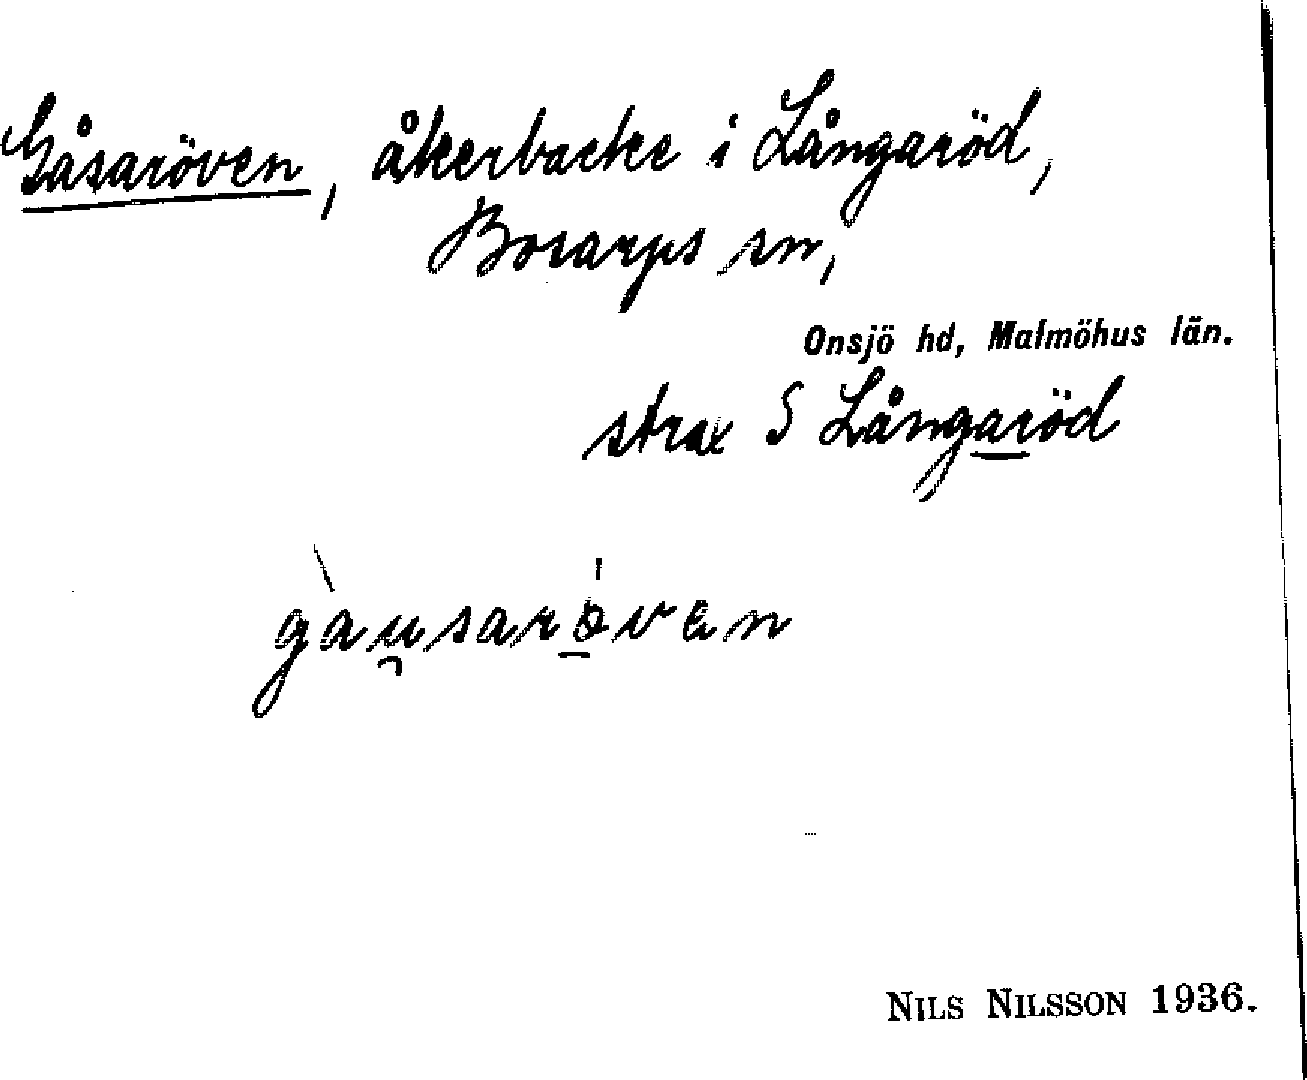 Gåsaröven, åkerbacke i Långaröd,
Bosarps sn,
Onsjö hd, Malmöhus län.
strax S Långaröd
gàu̯saröven
NILS NILSSON 1936.